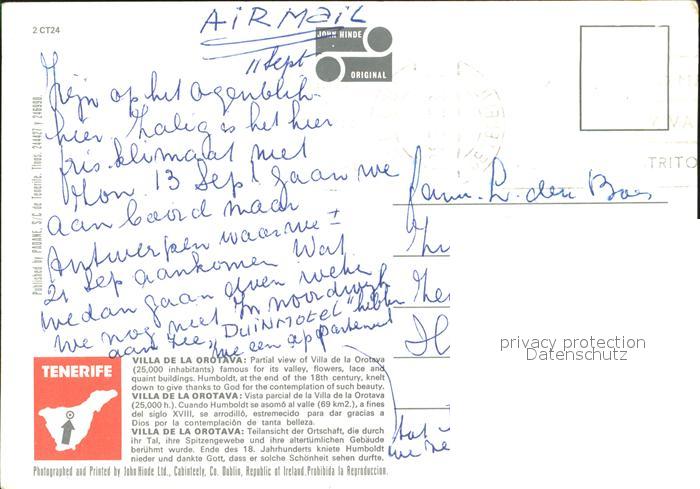 AIRMAIL
2 CT24
JOHN HINDE
ORIGINAL
11 Sept
Zijn op het ogenblik
hier. Zalig is het hier
fris klimaat met
Mon. 13 Sep gaan we
aan boord naar
Antwerpen waar we ±
21 Sep aankomen Wat
we dan gaan doen weten
we nog niet In Noordwijk
aan Zee, "DUINMOTEL" hebben
we een appartement
Fam. L. den Boer
TRITO
Published by PADANE, S/C de Tenerife. Tfnos: 244427 y 246990.
privacy protection
Datenschutz
TENERIFE
VILLA DE LA OROTAVA: Partial view of Villa de la Orotava
(25,000 inhabitants) famous for its valley, flowers, lace and
quaint buildings. Humboldt, at the end of the 18th century, knelt
down to give thanks to God for the contemplation of such beauty.
VILLA DE LA OROTAVA: Vista parcial de la Villa de la Orotava
(25,000 h.). Cuando Humboldt se asomó al valle (69 km2.), a fines
del siglo XVIII, se arrodilló, estremecido para dar gracias a
Dios por la contemplación de tanta belleza.
VILLA DE LA OROTAVA: Teilansicht der Ortschaft, die durch
ihr Tal, ihre Spitzengewebe und ihre altertümlichen Gebäude
berühmt wurde. Ende des 18. Jahrhunderts kniete Humboldt
nieder und dankte Gott, dass er solche Schönheit sehen durfte.
Photographed and Printed by John Hinde Ltd., Cabinteely, Co. Dublin, Republic of Ireland. Prohibida la Reproduccion.